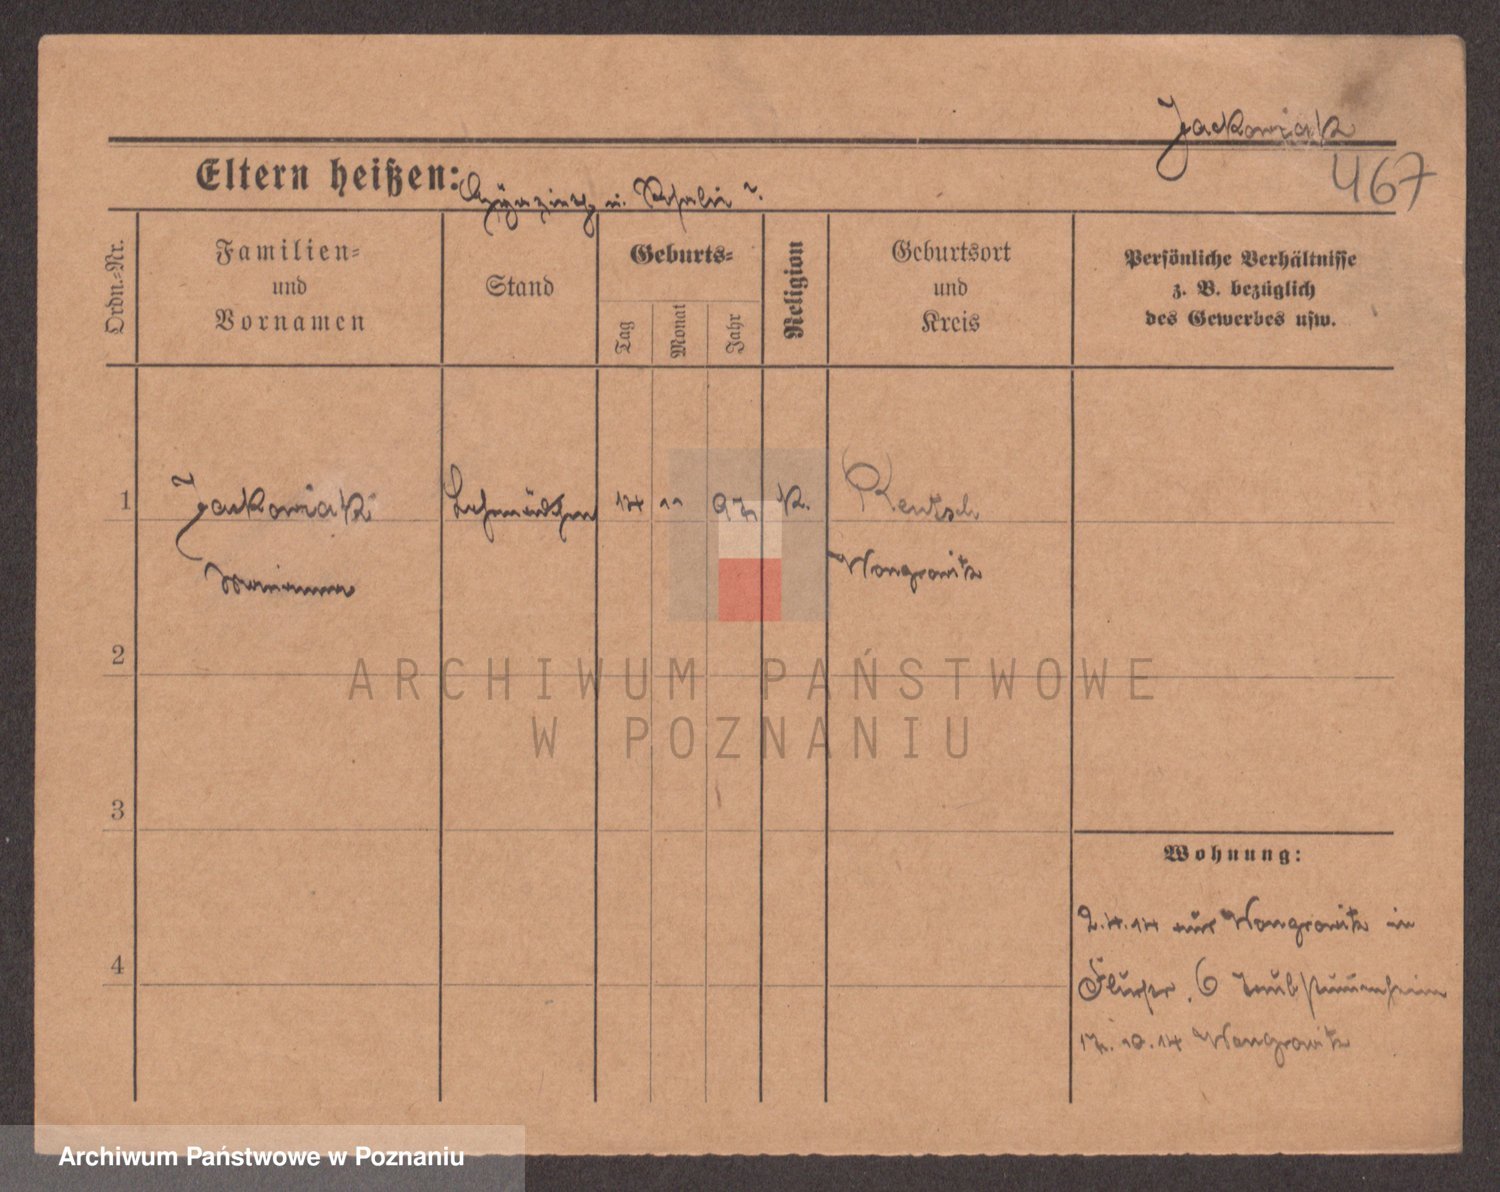 Jackowiak
467
Eltern heißen: u.
Ordn.=Nr.
Familien=
und
Vornamen
Stand
Geburts=
Tag
Monat
Jahr
Religion
Geburtsort
und
Kreis
Persönliche Verhältnisse
z. B. bezüglich
des Gewerbes usw.
1
Jackowiak
Marianna
Lehrmädchen
14
11
97
K.
Rentsch
Wongrowitz
2
ARCHIWUM PAŃSTWOWE
W POZNANIU
3
Wohnung:
4
2.4.14 aus Wongrowitz in
Flurstr. 6 Taubstummenheim
17. 10. 14 Wongrowitz
Archiwum Państwowe w Poznaniu